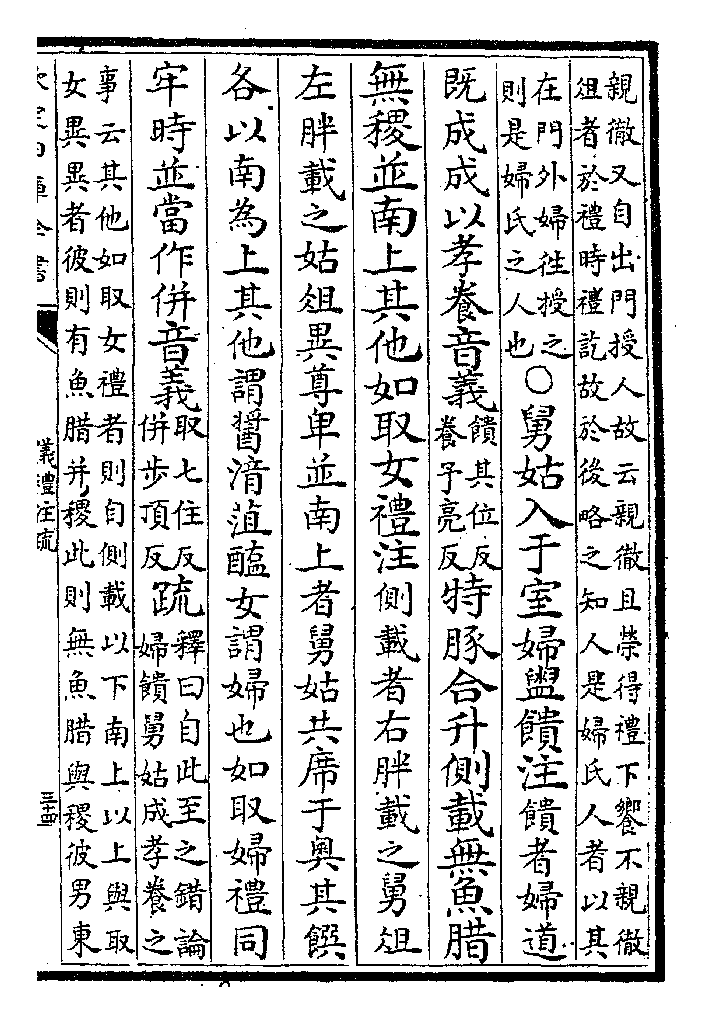 親徹又自出門授人故云親徹且榮得禮下饗不親徹
俎者於禮時禮訖故於後略之知人是婦氏人者以其
在門外婦往授之
則是婦氏之人也○舅姑入于室婦盥饋注饋者婦道
既成成以孝養音義饋其位反
養子亮反特豚合升側載無魚腊
無稷並南上其他如取女禮注側載者右胖載之舅俎
左胖載之姑俎異尊卑並南上者舅姑共席于奥其饌
各以南為上其他謂醬湆菹醢女謂婦也如取婦禮同
牢時並當作併音義取七住反
併步頂反疏釋曰自此至之錯論
婦饋舅姑成孝養之
事云其他如取女禮者則自側載以下南上以上與取
女異異者彼則有魚腊并稷此則無魚腊與稷彼男東
欽定四庫全書
儀禮注疏
三十四